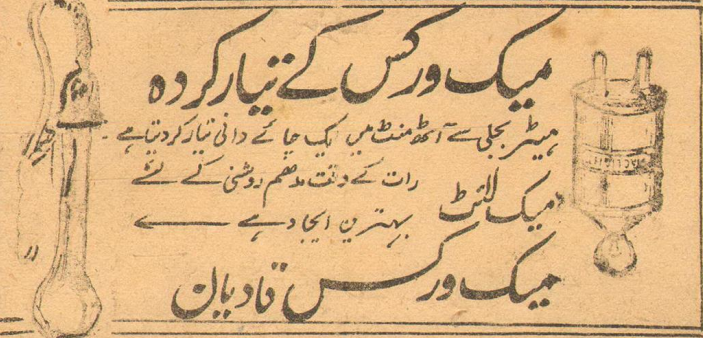 میک ورکس کے تیار کردہ
ہیٹر بجلی سے آٹھ منٹ میں ایک چائے دانی تیار کردیتا ہے
رات کے وقت مدھم روشنی کے لئے
میک لائٹ
بہترین ایجاد ہے
میک ورکس قادیان